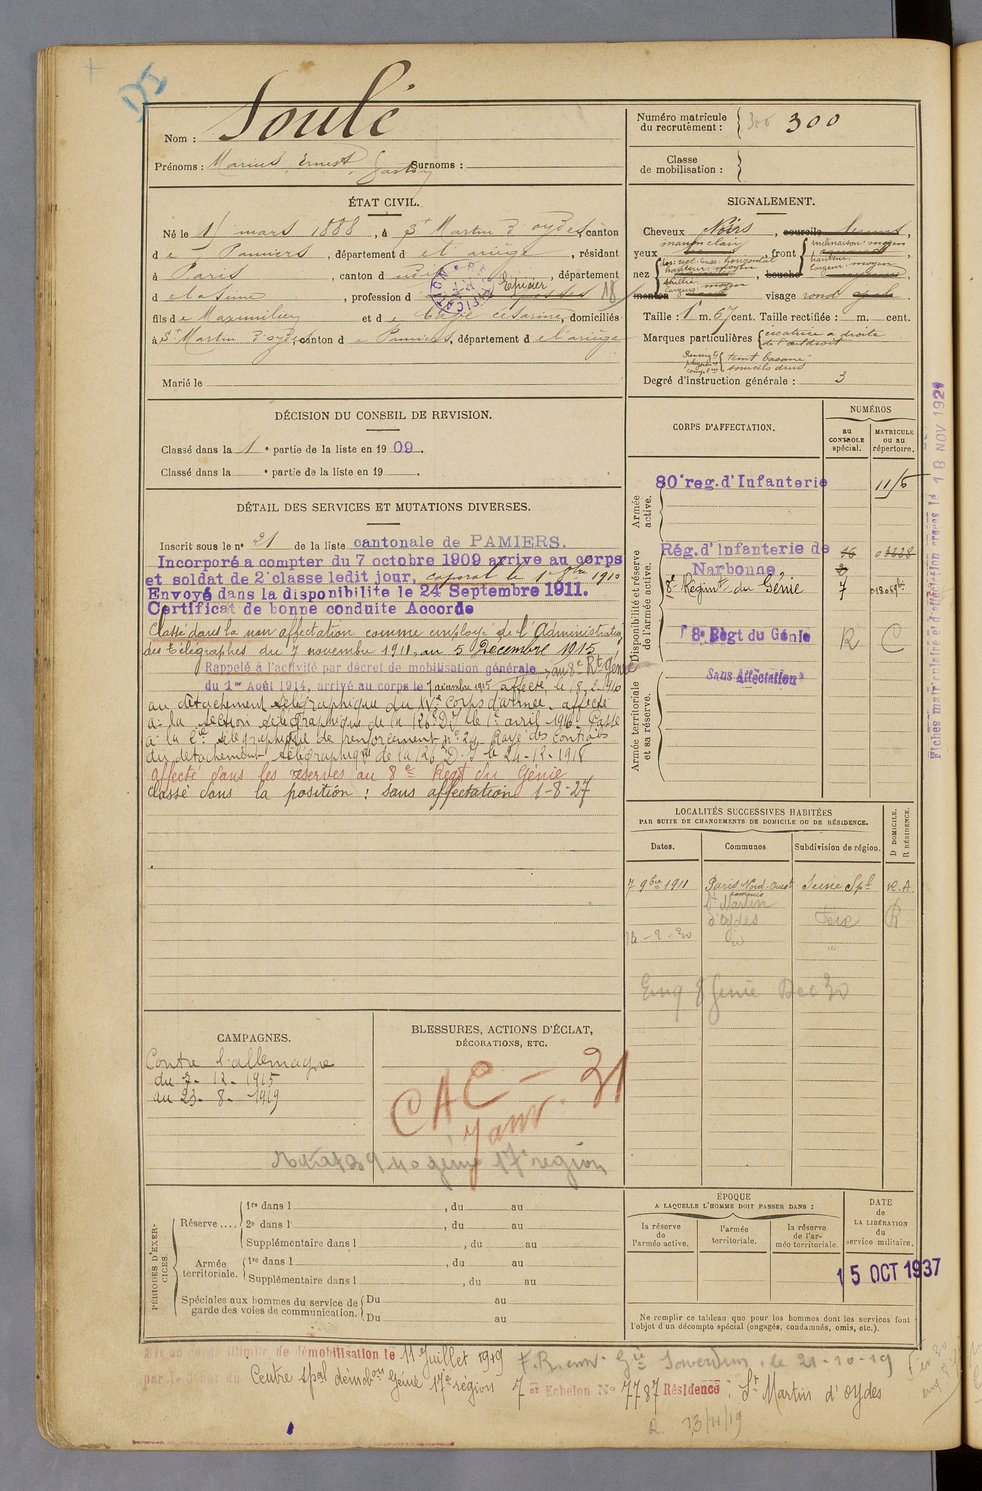 DI
Nom : Soulé
Prénoms : Marius, Ernest, Gaston Surnoms :
Numéro matricule du recrutement : 300 300
Classe de mobilisation :
ÉTAT CIVIL.
Né le 1er mars 1888, à St Martin d'oydes, canton
de Pamiers, département de l'ariège, résidant
à Paris, canton d, département
de la Seine, profession d Épicier 18
fils de Maximilien et de César, domiciliés
à St Martin d'oydes, canton de Pamiers, département de l'ariège
Marié le
SIGNALEMENT.
Cheveux Noirs, sourcils,
yeux marron clair, front inclinaison moyen hauteur largeur moyen,
nez dos rect. base horizontal hauteur moyen saillie largeur moyen, bouche
menton visage rond
Taille : 1 m. 67 cent. Taille rectifiée : m. cent.
Marques particulières cicatrice a droite
teint basané
sourcils drus
Degré d'instruction générale : 3
DÉCISION DU CONSEIL DE REVISION.
Classé dans la 1e partie de la liste en 1909.
Classé dans la e partie de la liste en 19
DÉTAIL DES SERVICES ET MUTATIONS DIVERSES.
Inscrit sous le n° 21 de la liste cantonale de PAMIERS.
Incorporé a compter du 7 octobre 1909 arrive au corps
et soldat de 2e classe ledit jour, caporal le 1er 8bre 1910
Envoyé dans la disponibilite le 24 Septembre 1911.
Certificat de bonne conduite Accorde
Classé dans la non affectation comme employé de l'Administration
des Télégraphes du 7 novembre 1911, au 5 Décembre 1915
Rappelé à l'activité par décret de mobilisation générale, au 8e Rt Génie
du 1er Août 1914, arrivé au corps le 7 décembre 1915 affecté le 15.2.1916
au détachement télégraphique du IVe Corps d'armée. affecté
à la section télégraphique de la 126e DI le 1er avril 1916. Passé
à la Cie télégraphique de renforcement n° 24. Rayé des Contrôles
du détachement télégraphique de la 126 D.I le 24-12-1918
Affecté dans les réserves au 8e Regt du Génie
Classé dans la position : Sans affectation 1-8-27
CORPS D'AFFECTATION.
NUMÉROS
au CONTROLE spécial.
MATRICULE ou au répertoire.
Armée active.
80e reg. d'Infanterie
Disponibilité et réserve de l'armée active.
Rég. d'Infanterie de Narbonne
8e Régimt du Génie 7
8e Règt du Génie R C
Sans Affectation
Armée territoriale et sa réserve.
LOCALITÉS SUCCESSIVES HABITÉES
PAR SUITE DE CHANGEMENTS DE DOMICILE OU DE RÉSIDENCE.
Dates. Communes Subdivision de région. D DOMICILE. R RÉSIDENCE.
7 9bre 1911 Paris Nord-Ouest Seine Spl R.A.
St Martin d'oydes Foix R
Génie Dec 30
CAMPAGNES.
Contre l'allemagne
du 7-12-1915
au 23-8-1919
BLESSURES, ACTIONS D'ÉCLAT,
DÉCORATIONS, ETC.
CAC - Janv. 31
génie 17e région
PÉRIODES D'EXERCICES.
Réserve....
1re dans l, du au
2e dans l, du au
Supplémentaire dans l, du au
Armée territoriale.
1re dans l, du au
Supplémentaire dans l, du au
Spéciales aux hommes du service de garde des voies de communication.
Du au
Du au
ÉPOQUE
A LAQUELLE L'HOMME DOIT PASSER DANS :
la réserve de l'armée active.
l'armée territoriale.
la réserve de l'armée territoriale.
DATE de LA LIBÉRATION du service militaire.
15 OCT 1937
Ne remplir ce tableau que pour les hommes dont les services font l'objet d'un décompte spécial (engagés, condamnés, omis, etc.).
Mis en congé illimité de démobilisation le 11 juillet 1919
par le dépôt du Centre spal démobon Génie 17e région 7e Echelon No 7787 Résidence : St Martin d'oydes
Saverdun, le 21-10-19
R. 13/11/19
Fiches matriculaire et d'affection créées le 18 NOV 1921